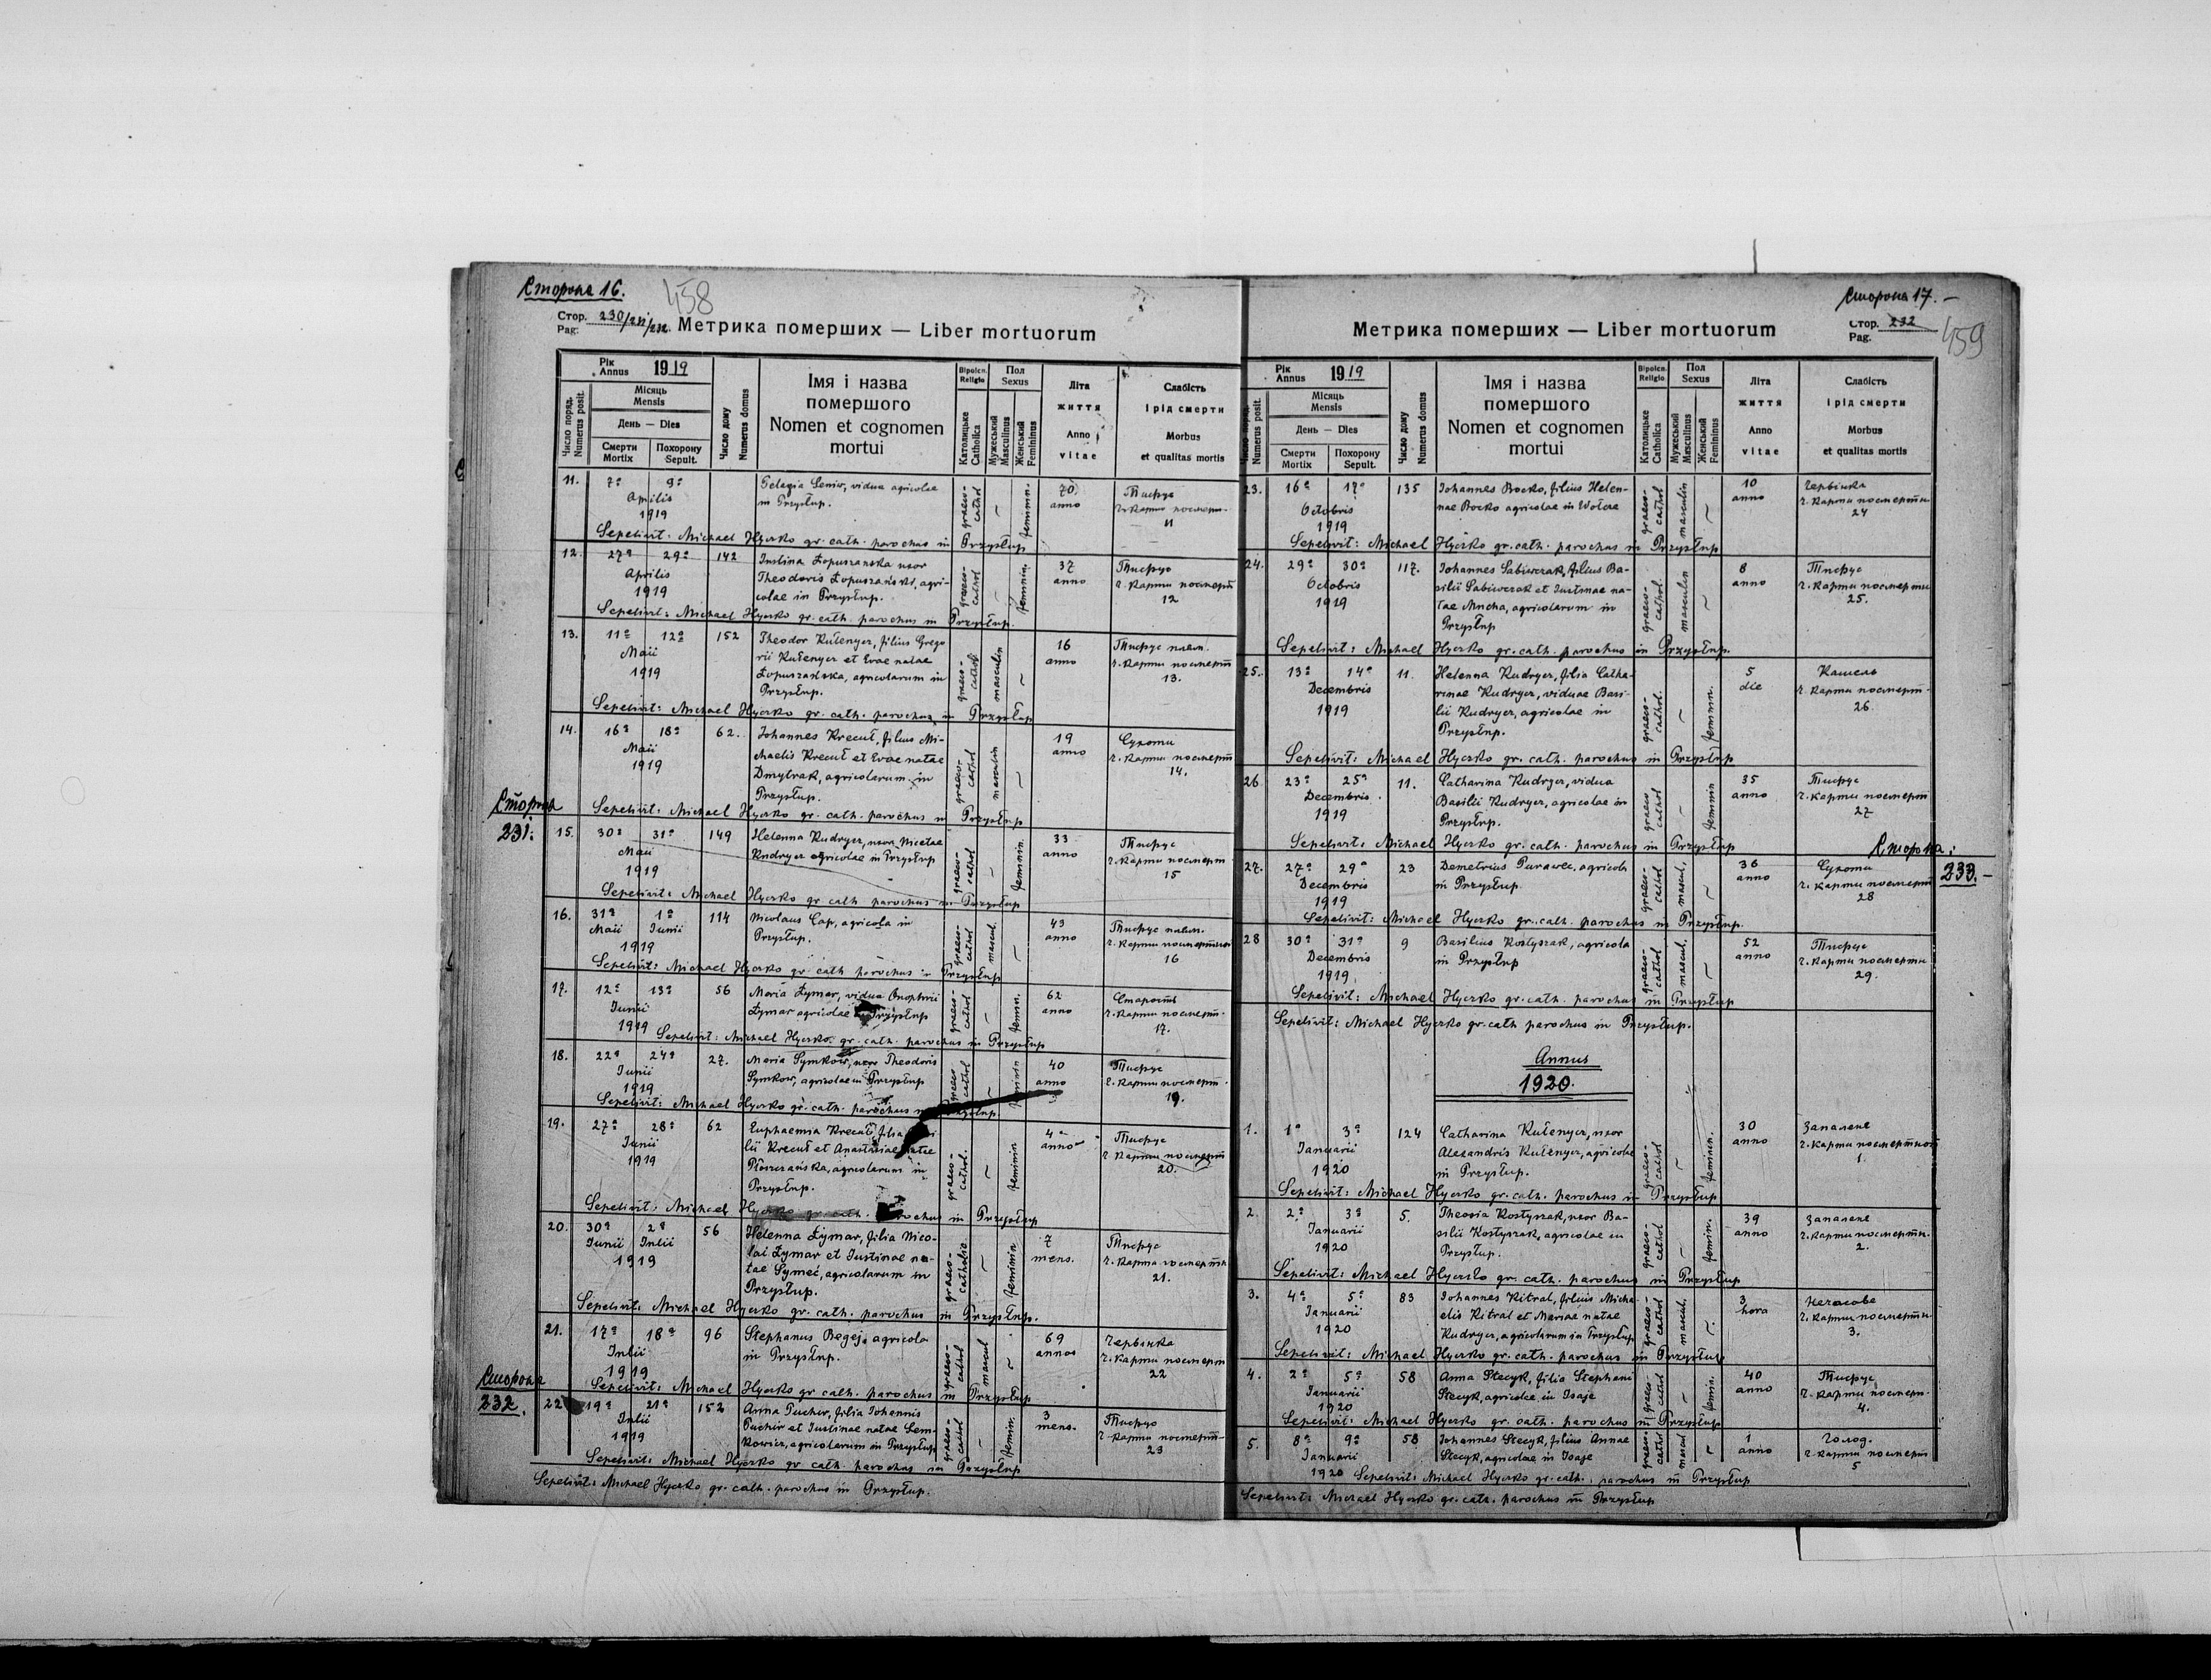 Сторона 16.
458
Стор. 230/231/232.
Pag:
Метрика померших — Liber mortuorum
Рік
Annus 1919
Число поряд.
Numerus posit.
Місяць
Mensis
День — Dies
Смерти
Mortix
Похорону
Sepult.
Число дому
Numerus domus
Імя і назва
помершого
Nomen et cognomen
mortui
Віроісп.
Religio
Католицьке
Catholica
Пол
Sexus
Мужеський
Masculinus
Женський
Femininus
Літа
життя
Anno
vitae
Слабість
і рід смерти
Morbus
et qualitas mortis
11. 7ª 9ª
Aprilis
1919
Pelagia Seniw, vidua agricolae
in Przysłup.
graeco-cathol ~ feminin.
70 anno
Тифус
11
Sepelivit: Michael Hyćko gr. cath. parochus in Przysłup
12. 27ª 29ª 142
Aprilis
1919
Justina Łopuszańska uxor
Theodoris Łopuszański, agri-
colae in Przysłup.
graeco-cathol ~ feminin.
37 anno
Тифус
ч. карти посмерт
12
Sepelivit: Michael Hyćko gr. cath. parochus in Przysłup.
13. 11ª 12ª 152
Maii
1919
Theodor Kułenyez, filius Grego
rii Kułenyez et Evae natae
Łopuszańska, agricolarum in
Przysłup.
graeco-cathol. masculin ~
16 anno
Тифус плям.
ч. карти посмерт
13.
Sepelivit: Michael Hyćko gr. cath. parochus in Przysłup
14. 16ª 18ª 62.
Maii
1919
Johannes Krecuł, filius Mi-
chaelis Krecuł et Evae natae
Dmytrak, agricolarum in
Przysłup.
graeco-cathol masculin ~
19 anno
Сухоти
ч. карти посмерт
14.
Sepelivit: Michael Hyćko gr. cath. parochus in Przysłup
Сторона
231.
15. 30ª 31ª 149
Maii
1919
Helenna Kudryez, uxor Nicetae
Kudryez agricolae in Przysłup
graeco-cathol ~ feminin.
33 anno
Тифус
ч. карти посмерт
15
Sepelivit: Michael Hyćko gr cath parochus in Przysłup
16. 31ª 1ª 114
Maii Junii
1919
Nicolaus Cap, agricola in
Przysłup.
graeco-cathol mascul. ~
43 anno
Тифус плям.
16
Sepelivit: Michael Hyćko gr. cath parochus in Przysłup
17. 12ª 13ª 56
Junii
1919
Maria Łymar, vidua Onophrii
Łymar agricolae Przysłup
graeco-cathol ~ femin.
62 anno
Старость
ч. карти посмерт.
17.
Sepelivit: Michael Hyćko gr. cath. parochus in Przysłup
18. 22ª 24ª 27.
Junii
1919
Maria Symkow, uxor Theodoris
Symkow, agricolae in Przysłup
graeco cathol ~
40 anno
Тифус
ч. карти посмерт.
19.
Sepelivit: Michael Hyćko gr. cath. parochus
19. 27ª 28ª 62
Junii
1919
Euphaemia Krecuł filia
lii Krecuł et Anastasiae natae
Płoszczańska, agricolarum in
Przysłup.
graeco-cathol. ~ feminin
4 anno
Тифус
ч карти посмерт
20.
Sepelivit: Michael Hyćko gr. cath. parochus in Przysłup
20. 30ª 2ª 56
Junii Julii
1919
Helenna Łymar, filia Nico-
lai Łymar et Justinae na-
tae Symeć, agricolarum in
Przysłup.
graeco-catholic ~ feminin
7 mens.
Тифус
ч. карти посмертн
21.
Sepelivit: Michael Hyćko gr. cath. parochus in Przysłup.
21. 17ª 18ª 96
Julii
1919
Stephanus Begej, agricola
in Przysłup.
graeco-cathol mascul ~
69 anno
Червінка
ч. карти посмерт
22
Sepelivit: Michael Hyćko gr cath. parochus in Przysłup
Сторона
232.
22 19ª 21ª 152
Julii
1919
Anna Puchir, filia Johannis
Puchir et Justinae natae Sem-
kowicz, agricolarum in Przysłup
graeco-cathol ~ femin.
3 mens.
Тифус
ч карти посмерт
23
Sepelivit: Michael Hyćko gr cath. parochus in Przysłup
Sepelivit: Michael Hyćko gr. cath. parochus in Przysłup.
Сторона 17.-
Стор. 232
Pag.
459
Метрика померших — Liber mortuorum
Рік
Annus 1919
Numerus posit.
Місяць
Mensis
День — Dies
Смерти
Mortix
Похорону
Sepult.
Число дому
Numerus domus
Імя і назва
помершого
Nomen et cognomen
mortui
Віроісп.
Religio
Католицьке
Catholica
Пол
Sexus
Мужеський
Masculinus
Женський
Femininus
Літа
життя
Anno
vitae
Слабість
і рід смерти
Morbus
et qualitas mortis
23. 16ª 17ª 135
Octobris
1919
Johannes Bocko, filius Helen-
nae Bocko agricolae in Wolcze
graeco-cathol masculin ~
10 anno
Червінка
ч. карти посмертн
24
Sepelivit: Michael Hyćko gr. cath. parochus in Przysłup
24. 29ª 30ª 117.
Octobris
1919
Johannes Sabiwczak, filius Ba-
silii Sabiwczak et Justinae na-
tae Mucha, agricolarum in
Przysłup
graeco-cathol. masculin ~
8 anno
Тифус
ч. карти посмертн
25.
Sepelivit: Michael Hyćko gr. cath. parochus in Przysłup.
25. 13ª 14ª 11.
Decembris
1919
Helenna Kudryez, filia Catha-
rinae Kudryez, viduae Basi-
lii Kudryez, agricolae in
Przysłup.
graeco-cathol. ~ feminin.
5 die
Кашель
ч. карти посмерт.
26
Sepelivit: Michael Hyćko gr. cath. parochus in Przysłup
26 23ª 25ª 11.
Decembris
1919
Catharina Kudryez, vidua
Basilii Kudryez, agricolae in
Przysłup.
graeco cathol ~ feminin
35 anno
Тифус
ч. карти посмерт
27
Sepelivit: Michael Hyćko gr. cath. parochus in Przysłup
Сторона:
233.-
27. 27ª 29ª 23
Decembris
1919
Demetrius Purawec, agricola
in Przysłup.
graeco-cathol mascul. ~
36 anno
Сухоти
ч. карти посмерт
28
Sepelivit: Michael Hyćko gr. cath. parochus in Przysłup.
28 30ª 31ª 9
Decembris
1919
Basilius Kostyszak, agricola
in Przysłup
graeco-cathol mascul. ~
52 anno
Тифус
ч. карти посмертн
29.
Sepelivit: Michael Hyćko gr. cath. parochus in Przysłup
Sepelivit: Michael Hyćko gr. cath parochus in Przysłup.
Annus
1920.
1. 1ª 3ª 124
Januarii
1920
Catharina Kułenyez, uxor
Alexandris Kułenyez, agricolae
in Przysłup.
graeco-cathol ~ feminin.
30 anno
Запалене
ч. карти посмертної
1.
Sepelivit: Michael Hyćko gr. cath. parochus in Przysłup
2. 2ª 3ª 5.
Januarii
1920
Theosia Kostyszak, uxor Ba-
silii Kostyszak, agricolae in
Przysłup.
graeco-cathol ~ femin.
39 anno
Запалене
ч. карти посмертн.
2.
Sepelivit: Michael Hyćko gr. cath. parochus in Przysłup
3. 4ª 5ª 83
Januarii
1920
Johannes Kitral, filius Micha-
elis Kitral et Mariae natae
Kudryez, agricolarum in Przysłup
graeco-cathol mascul. ~
3 hora
Нечасове
ч. карти посмертн
3.
Sepelivit: Michael Hyćko gr. cath. parochus in Przysłup
4. 2ª 5ª 58
Januarii
1920
Anna Stecyk, filia Stephani
Stecyk, agricolae in Isaje
graeco-cathol ~ femin.
40 anno
Тифус
ч. карти посмерт.
4.
Sepelivit: Michael Hyćko gr. cath. parochus in Przysłup
5. 8ª 9ª 58
Januarii
1920
Johannes Stecyk, filius Annae
Stecyk, agricolae in Isaje
graeco-cathol mascul ~
1 anno
Голод.
ч. карти посмерт
5
Sepelivit: Michael Hyćko gr. cath. parochus in Przysłup
Sepelivit: Michael Hyćko gr. cath. parochus in Przysłup